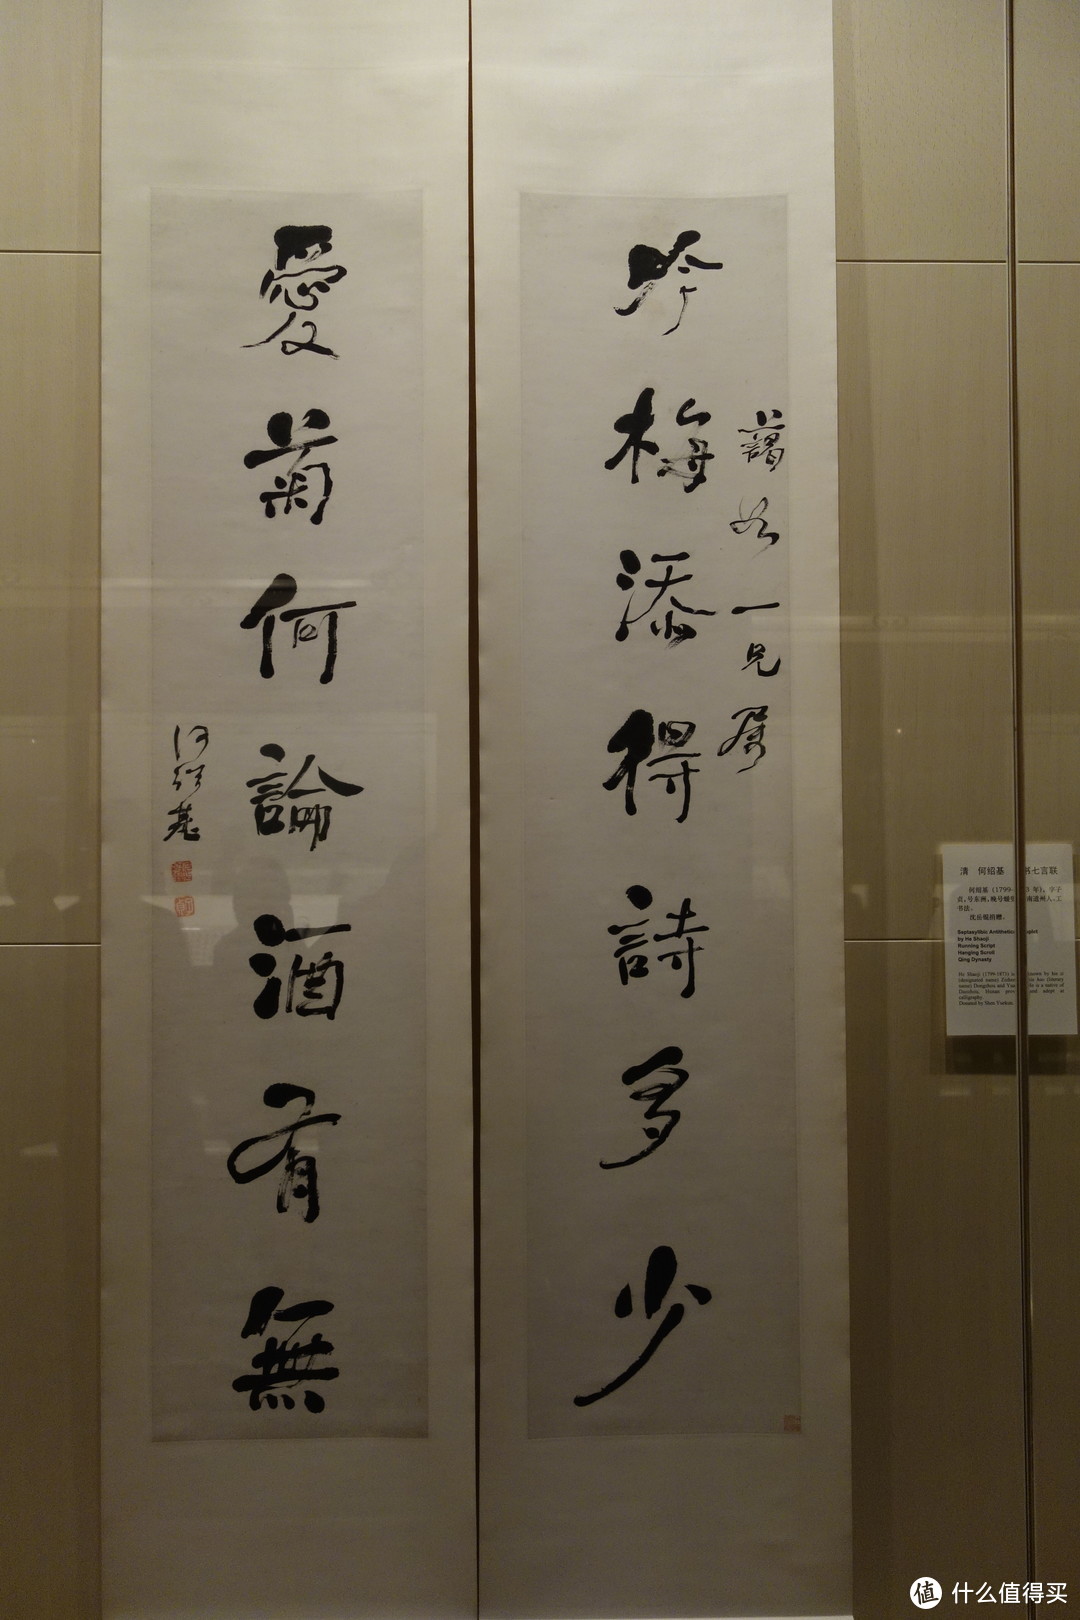 吟梅添得詩多少
藹如一兄屬
愛菊何論酒有無
何紹基
清 何绍基 书七言联
何绍基（1799- 3年），字子
贞，号东洲，晚号蝯叟 南道州人。工
书法。
沈岳焜捐赠。
Septasyllbic Antithetic plet
by He Shaoji
Running Script
Hanging Scroll
Qing Dynasty
He Shaoji (1799-1873) is
Daozhou, Hunan and adept at
calligraphy.
值 什么值得买